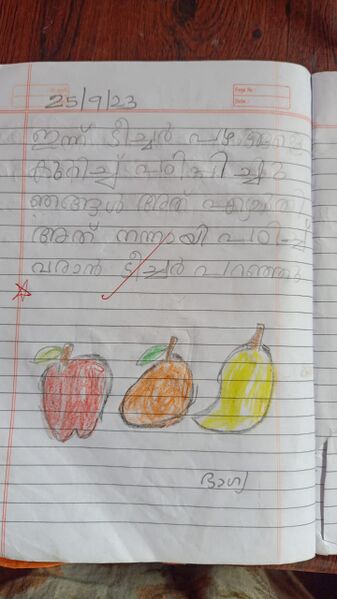 Page No.
Date :
25/9/23
ഇന്ന് ടീച്ചർ പഴങ്ങളെ
കുറിച്ച് പഠിപ്പിച്ചു
ഞങ്ങൾ അത് എഴുതി
അത് നന്നായി പഠിച്ച്
വരാൻ ടീച്ചർ പറഞ്ഞു